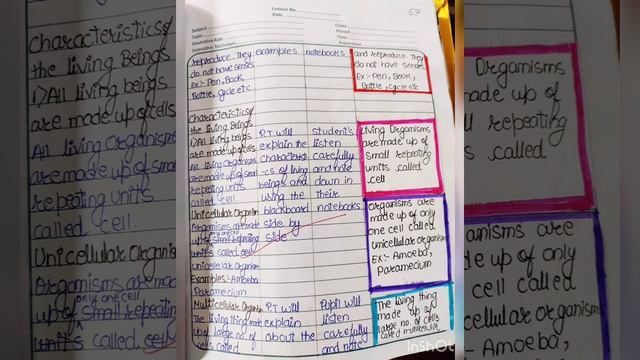 Lesson No.
Date
Class
Subject
Period
Topic
Time
Illustrative Aids
Supervisor
Innovative Technique
67
Reproduce. They
do not have senses
Ex:- Pen, Book,
Bottle, cycle etc
Characteristics of
the living Beings
1) All living beings
are made up of cells
All living Organisms
are made up of small
repeating units
called cell.
Unicellular Organism
Organisms are made
up of small repeating
only one cell
units called cell
Unicellular Organism
Examples: Amoeba
Paramecium
Multicellular Organism
The living thing made
up of large no. of
cells called
examples
P.T will
explain the
characteristi
-cs of living
beings and
using the
blackboard
side by
side
P.T will
explain
about the
notebooks
Student's
listen
carefully
and note
down in
their
notebooks.
Pupil will
listen
carefully
and note
and reproduce. They
do not have senses
Ex:- Pen, Book,
Bottle, cycle etc
Living Organisms
are made up of
small repeating
units called
cell
Organisms are
made up of only
one cell called
unicellular organism
Ex:- Amoeba,
Paramecium
The living thing
made up of
large no. of cells
called multicellular
InShOt
Characteristics of
the living Beings
1) All living beings
are made up of cells
All living Organisms
are made up of small
repeating units
called cell.
Unicellular Organism
Organisms are made
only one cell
up of small repeating
units called cell
Organisms
made up of
repeating
called
anisms are
up of only
cell called
cellular organism
Amoeba,